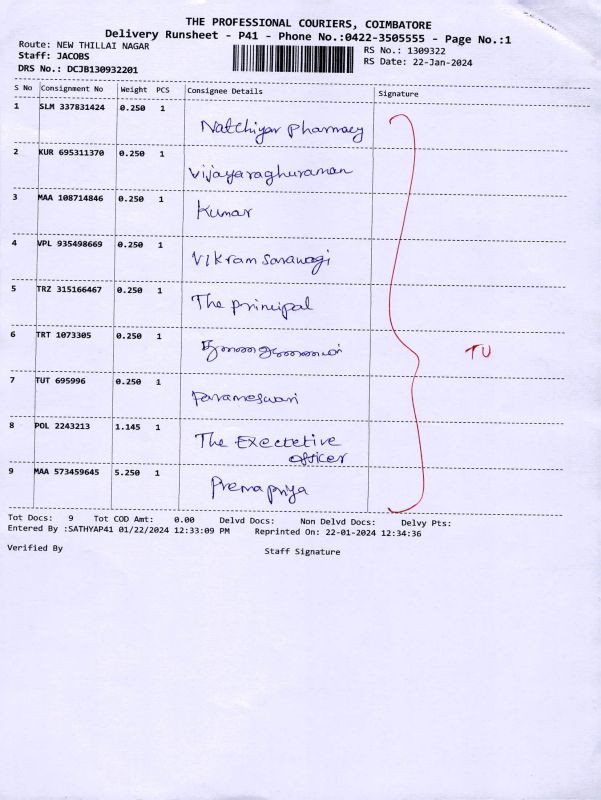 THE PROFESSIONAL COURIERS, COIMBATORE
Delivery Runsheet - P41 - Phone No.:0422-3505555 - Page No.:1
Route: NEW THILLAI NAGAR
RS No.: 1309322
Staff: JACOBS
RS Date: 22-Jan-2024
DRS No.: DCJB130932201
S No Consignment No Weight PCS Consignee Details Signature
1 SLM 337831424 0.250 1
Natchiyar Pharmacy
2 KUR 695311370 0.250 1
Vijayaraghuraman
3 MAA 108714846 0.250 1
Kumar
4 VPL 935498669 0.250 1
Vikram Sarawagi
5 TRZ 315166467 0.250 1
The principal
6 TRT 1073305 0.250 1
TU
7 TUT 695996 0.250 1
Parameswari
8 POL 2243213 1.145 1
The Exectetive
officer
9 MAA 573459645 5.250 1
Premapriya
Tot Docs: 9 Tot COD Amt: 0.00 Delvd Docs: Non Delvd Docs: Delvy Pts:
Entered By :SATHYAP41 01/22/2024 12:33:09 PM Reprinted On: 22-01-2024 12:34:36
Verified By Staff Signature